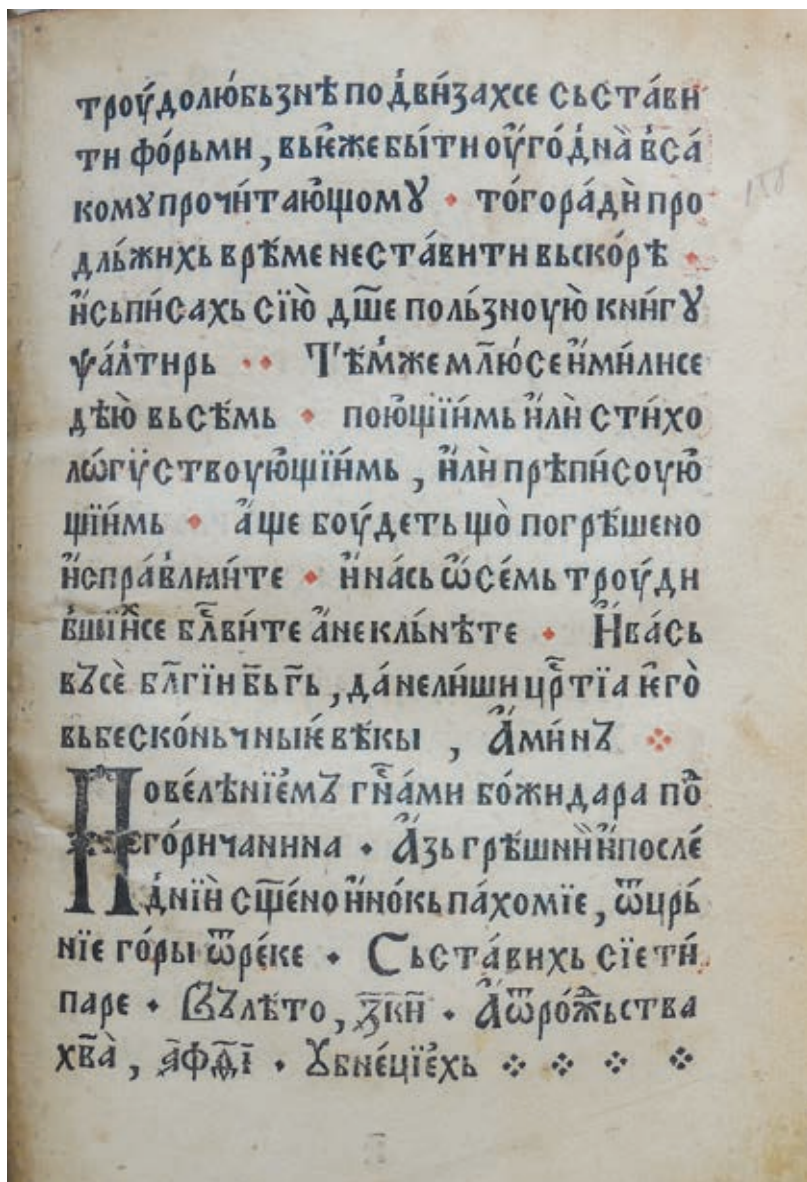 троу́долю́бьзнѣ подви́захсе сьста́ви
ти фо́рьми , вьѥже бы́ти оу҆го́дна̀ вса́
комꙋ прочи́таю҆щомꙋ · то́горади про
дль́жихь врѣме не ста́вити вьско́рѣ ·
и҆сьпи́сахь сїю̀ дш҃е поль́зноую̀ кни́гꙋ
ѱа́лтирь ·· Тѣ́мже мл҃ю́се и҆ми́лисе
дѣю̀ вьсѣ́мь · пою҆щїи́мь и҆лѝ сти́хо
лѡ́гӱствоую҆щїи́мь , и҆лѝ прѣпи́соую҆
щїи́мь · а҆́ще боу́деть що̀ погрѣ́шено
и҆спра́влꙗите · и҆на́сь ѡ҆се́мь троу́ди
вшїи̑хсе бл҃ви́те а҆некль́нѣте · И҆ва́сь
вꙋсѐ бл҃гїи б҃ь г҃ь , да́нели́ши цр҃тїа ѥ҆гѡ̀
вьбеско́ньчныѥ́ вѣ́кы , А҆ми́нꙋ
Пове́лѣнїе́мꙋ гн҃а́ми бо́жидара по
го́ричанина · А҆зь грѣ́шнӥ и҆после́
днїи сщ҃е́но и҆но́кь па́хомїе , ѿцрь́
нїе го́ры ѿре́ке · Сьста́вихь сїе ти́
паре · Вꙋлѣ́то , ҂з҃к҃и҃ · А҆ѿро́жⷣьства
хв҃а̀ , ҂аф҃ѳ҃і҃ · Ꙋбне́цїе́хь